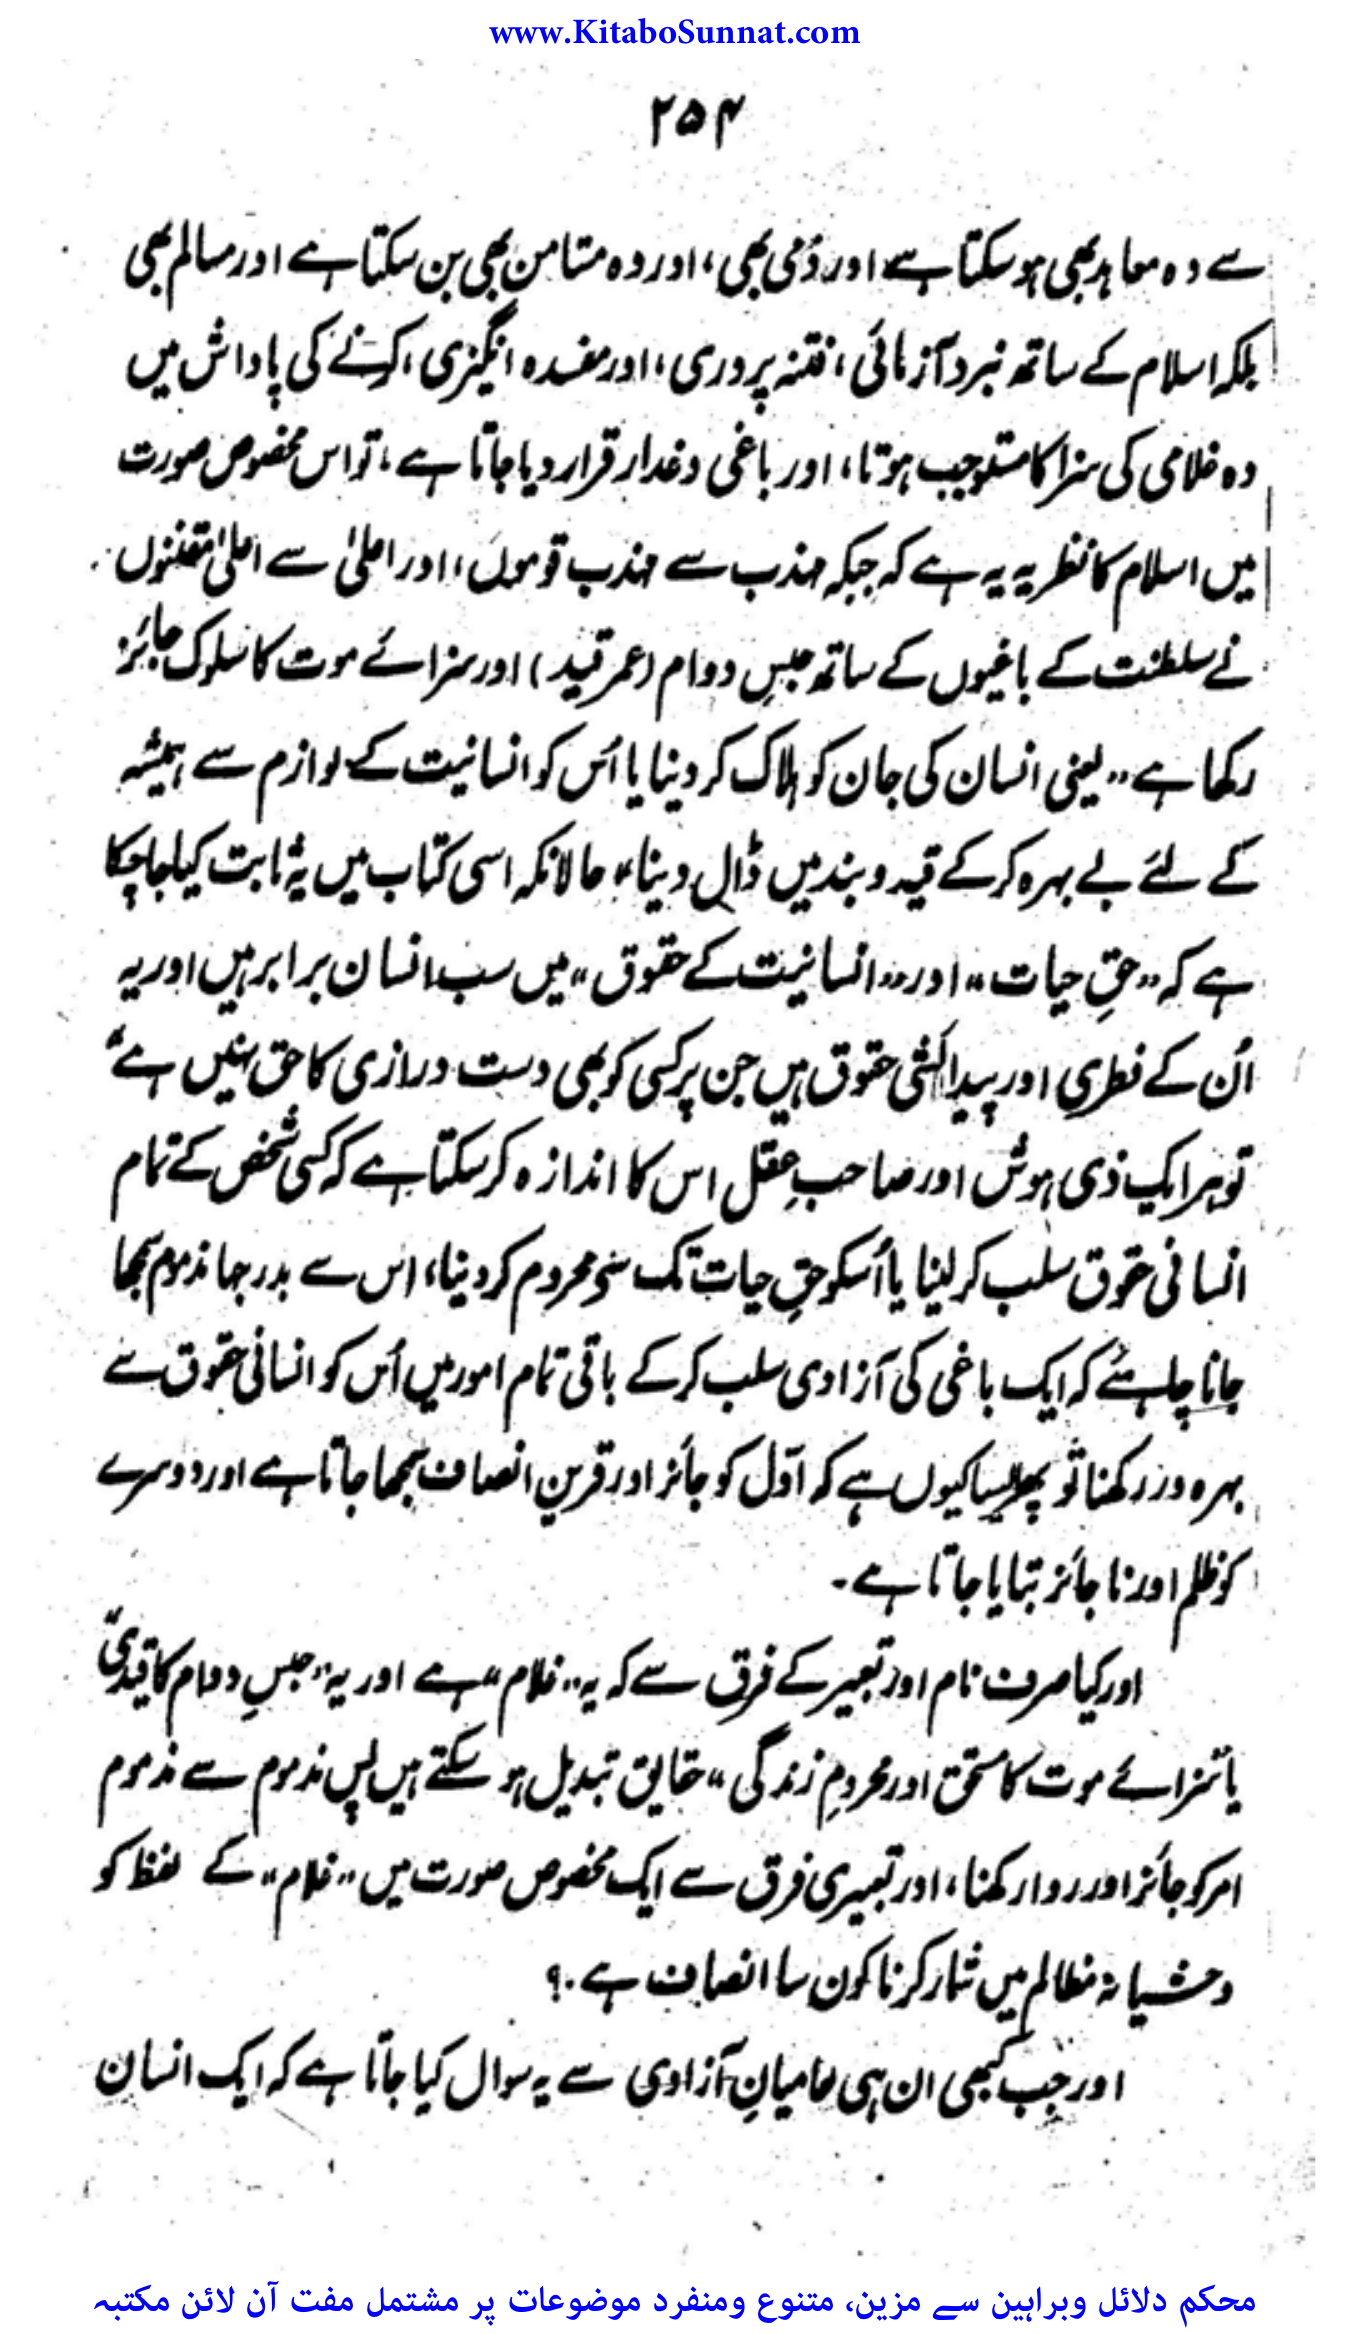 www.KitaboSunnat.com
۲۵۴
سے وہ معاہد بھی ہو سکتا ہے اور ذمی بھی، اور وہ مستامن بھی بن سکتا ہے اور مسالم بھی
بلکہ اسلام کے ساتھ نبرد آزمائی، فتنہ پروری، اور مفسدہ انگیزی، کرنے کی پاداش میں
وہ غلامی کی سزا کا مستوجب ہوتا، اور باغی و غدار قرار دیا جاتا ہے، تو اس مخصوص صورت
میں اسلام کا نظریہ یہ ہے کہ جبکہ مہذب سے مہذب قوموں، اور اعلیٰ سے اعلیٰ مقننوں
نے سلطنت کے باغیوں کے ساتھ حبسِ دوام (عمر قید) اور سزائے موت کا سلوک جائز
رکھا ہے ”یعنی انسان کی جان کو ہلاک کر دینا یا اُس کو انسانیت کے لوازم سے ہمیشہ
کے لئے بے بہرہ کر کے قید و بند میں ڈال دینا“ حالانکہ اسی کتاب میں یہ ثابت کیا جا چکا
ہے کہ ”حقِ حیات“ اور ”انسانیت کے حقوق“ میں سب انسان برابر ہیں اور یہ
اُن کے فطری اور پیدائشی حقوق ہیں جن پر کسی کو بھی دست درازی کا حق نہیں ہے“
تو ہر ایک ذی ہوش اور صاحبِ عقل اس کا اندازہ کر سکتا ہے کہ کسی شخص کے تمام
انسانی حقوق سلب کر لینا یا اُسکو حقِ حیات تک سے محروم کر دینا، اس سے بدرجہا مذموم سمجھا
جانا چاہئے کہ ایک باغی کی آزادی سلب کر کے باقی تمام امور میں اُس کو انسانی حقوق سے
بہرہ ور رکھنا تو پھر ایسا کیوں ہے کہ اوّل کو جائز اور قرینِ انصاف سمجھا جاتا ہے اور دوسرے
کو ظلم اور ناجائز بتایا جاتا ہے۔
اور کیا صرف نام اور تعبیر کے فرق سے کہ یہ ”غلام“ ہے اور یہ ”حبسِ دوام کا قیدی“
یا ”سزائے موت کا مستحق اور محرومِ زندگی“ حقایق تبدیل ہو سکتے ہیں پس مذموم سے مذموم
امر کو جائز اور روا رکھنا، اور تعبیری فرق سے ایک مخصوص صورت میں ”غلام“ کے لفظ کو
وحشیانہ مظالم میں شمار کرنا کون سا انصاف ہے۔؟
اور جب کبھی ان ہی حامیانِ آزادی سے یہ سوال کیا جاتا ہے کہ ایک انسان
محکم دلائل وبراہین سے مزین، متنوع ومنفرد موضوعات پر مشتمل مفت آن لائن مکتبہ